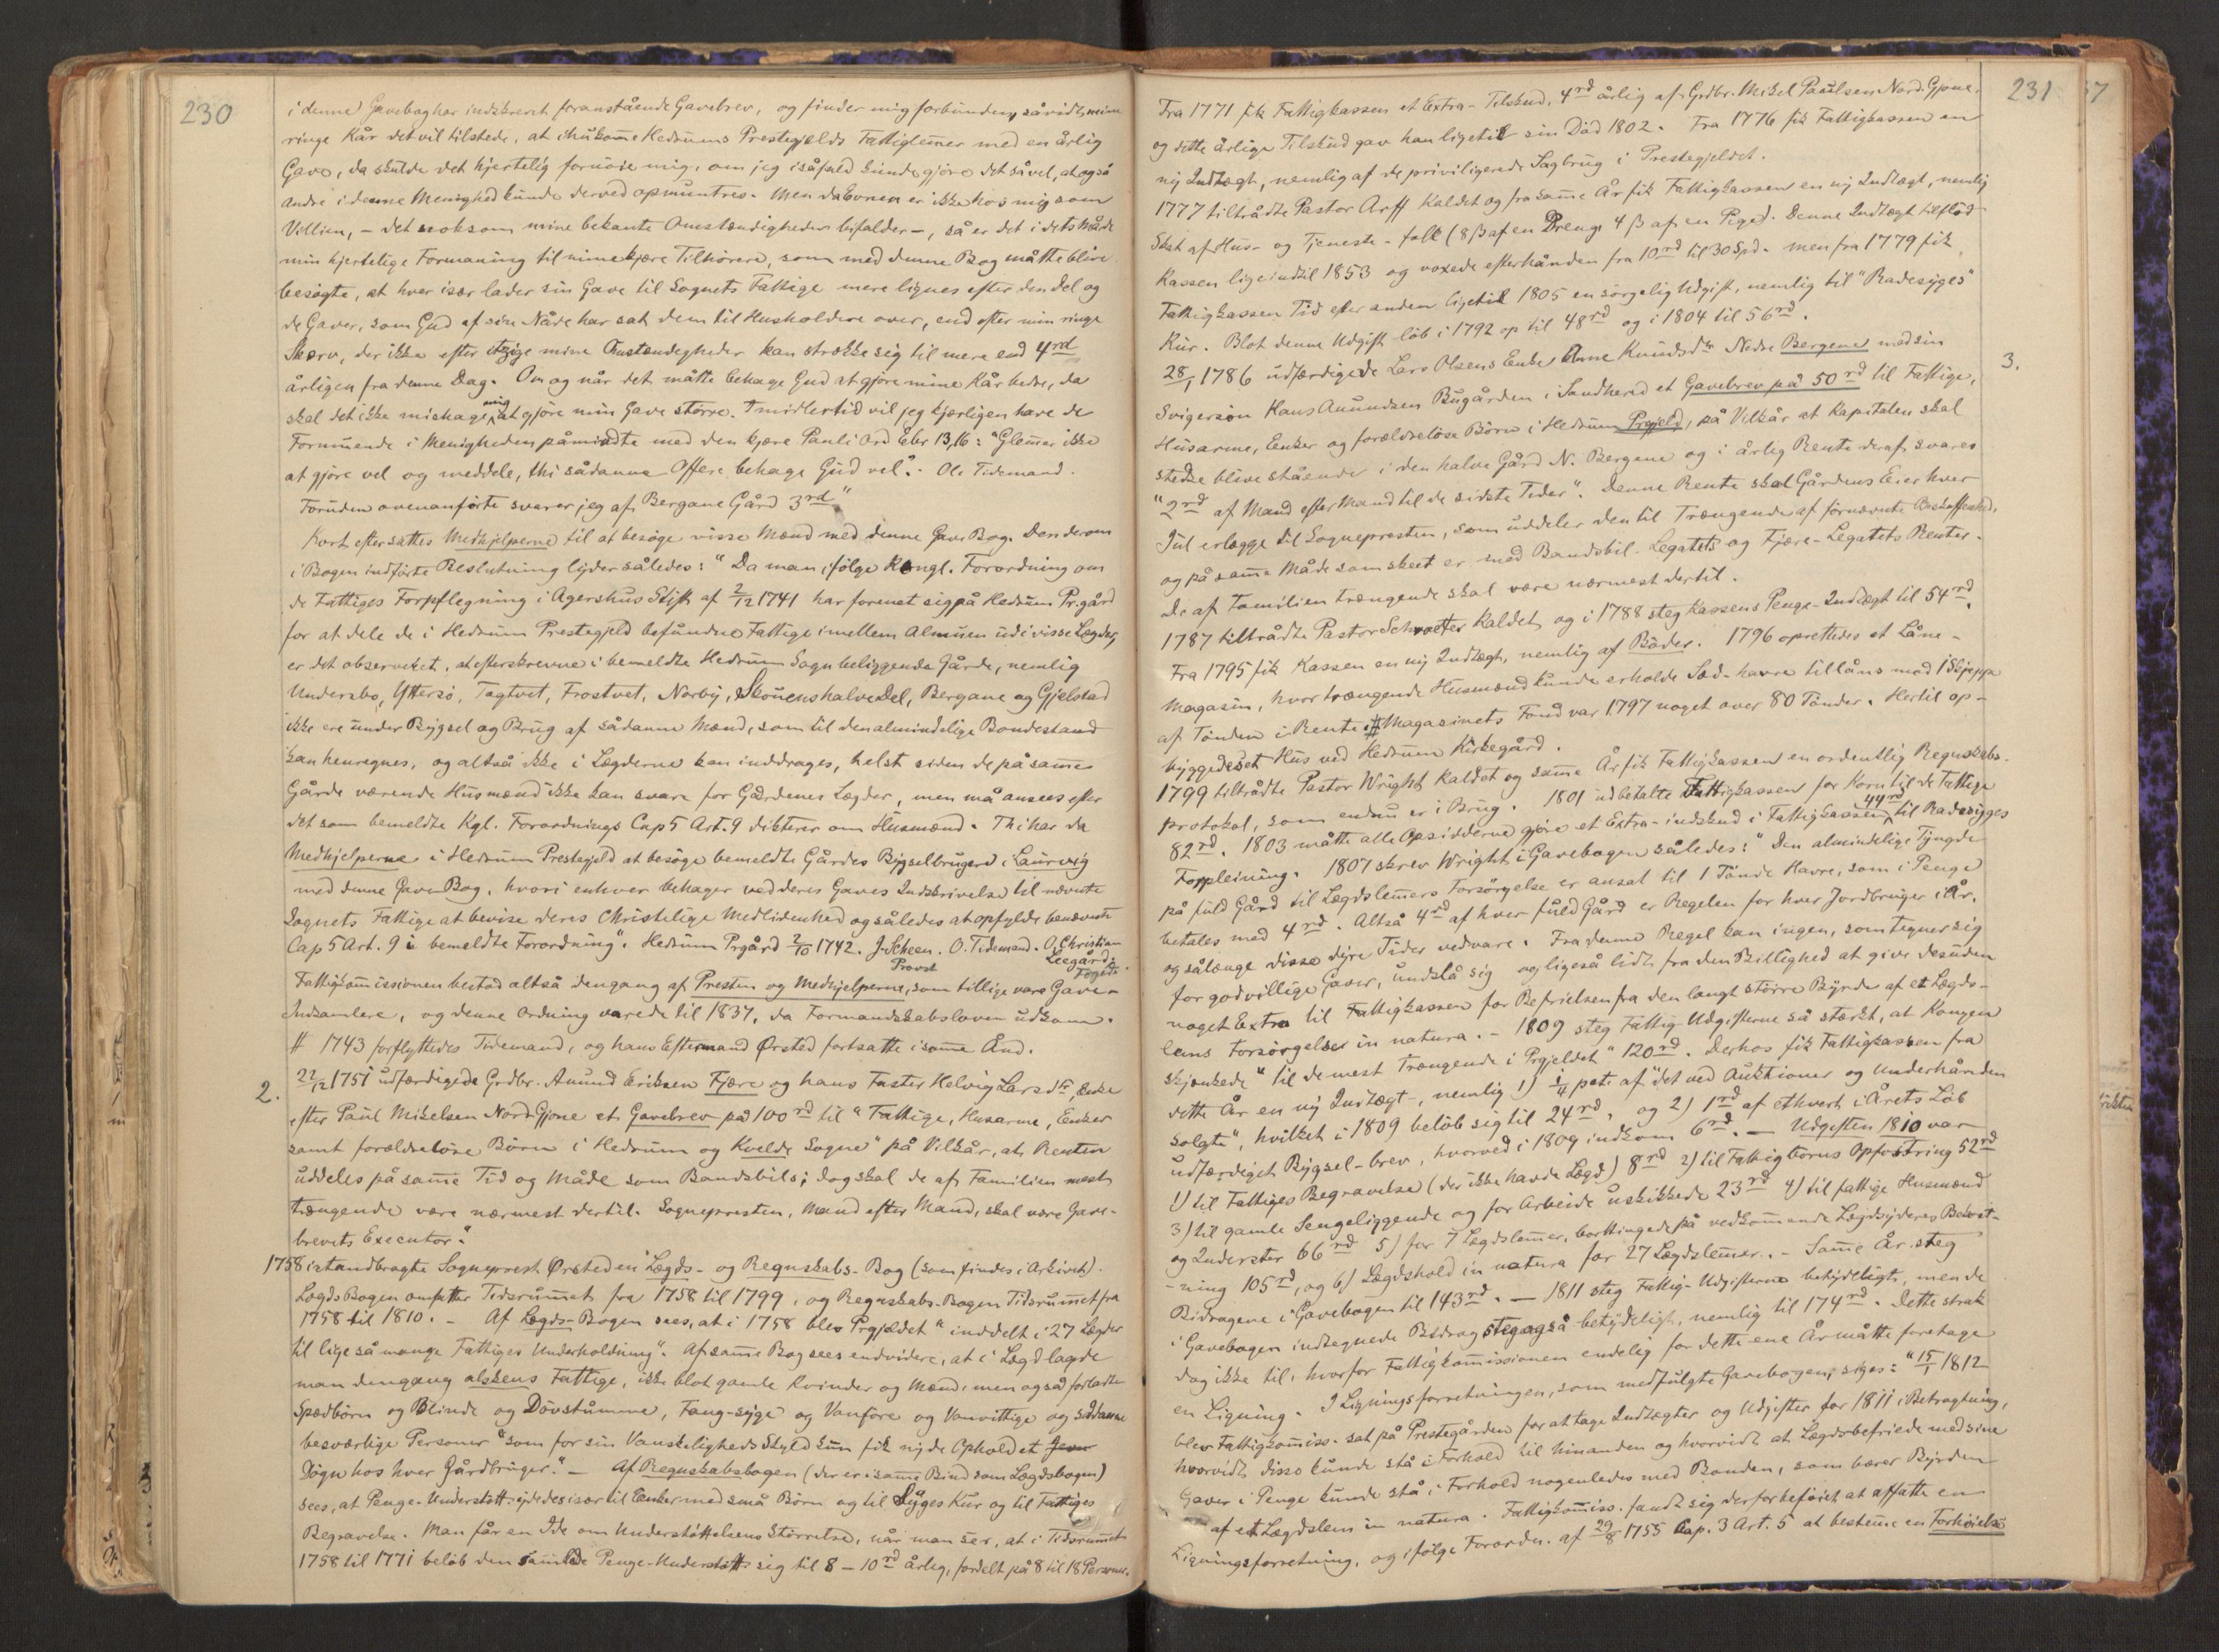 230
i denne Gavebog har indskrevet foranstående Gavebrev, og finder mig forbunden, såvidt mine
ringe Kår det vil tilstede, at ihukom̅e Hedrums Prestegjelds Fattiglem̅er med en årlig
Gave, da skulde det hjertelig fornöie mig, om jeg i såfald kunde gjöre det såvel, at også
andre i denne Menighed kunde derved opmuntres. Men da Evnen er ikke hos mig som
Villien, – det noksom mine bekante Omstændigheder befalder –, så er det i dets Måde
min hjertelige Formaning til mine kjære Tilhörere, som med denne Bog måtte blive
besögte, at hver især lader sin Gave til Sognets Fattige mere lignes efter den Del og
de Gaver, som Gud af sin Nåde har sat dem til Husholdere over, end efter min ringe
Skærv, der ikke efter itzige mine Omstændegheder kan strække sig til mere end 4rd
årligen fra denne Dag. Om og når det måtte behage Gud at gjöre mine Kår bedre, da
skal det ikke mishage mig at gjöre min Gave större. Imidlertid vil jeg kjærligen have de
Formuende i Menigheden påmindte med den kjære Pauli Ord Ebr 13,16: "Glem̅er ikke
at gjöre vel og meddele, thi sådanne Offere behage Gud vel". Ol. Tidemand.
Foruden ovenanförte svarer jeg af Bergane Gård 3rd"
Kort efter sattes Medhjelperne til at besöge visse Mænd med denne Gave Bog. Den derom
i Bogen indförte Beslutning lyder således: "Da man ifölge Kongl. Forordning om
de Fattiges Forpflegning i Agershus Stift af 2/12 1741 har forenet sig på Hedrum Pr.gård
for at dele de i Hedrum Prestegjeld befundne Fattige imellem Almuen udi visse Lægder,
er det observeret, at efterskrevne i bemeldte Hedrum Sogn beliggende Gårde, nemlig
Undersbo, Yttersö, Tagtvet, Frostvet, Norby, Skouens halve Del, Bergane og Gjelstad
ikke ere under Bygsel og Brug af sådanne Mænd, som til den almindelige Bondestand
kan henregnes, og altså ikke i Lægderne kan inddrages, helst siden de på sam̅e
Gårde værende Husmænd ikke kan svare for Gårdenes Lægder, men må ansees efter
det som bemeldte Kgl. Forordnings Cap 5 Art. 9 dikterer om Husmænd. Thi har da
Medhjelperne i Hedrum Prestegjeld at besöge bemeldte Gårdes Bygselbrugere i Laurvig
med denne Gave Bog, hvori enhver behager ved deres Gaves Indskrivelse til nævnte
Sognets Fattige at bevise deres Christelige Medlidenhed og således at opfylde benævnte
Cap 5 Art. 9 i bemeldte Forordning". Hedrum Prgård 2/10 1742. J. Scheen. O. Tidemand. O. Christian
Provst Leegård, Foged.
Fattigkom̅issionen bestod altså dengang af Presten og Medhjelperne, som tillige vare Gave-
Indsamlere, og denne Ordning varede til 1837, da Formandskabsloven udkom.
# 1743 forflyttedes Tidemand, og hans Eftermand Ørsted fortsatte i sam̅e Ånd.
2. 22/12 1751 udfærdigede Grdbr. Anund Eriksen Fjære og hans Faster Helvig Larsdtr, Enke
efter Paul Mikelsen Nord-Gjone et Gavebrev på 100rd til "Fattige, Husarme, Enker
samt forældrelöse Börn i Hedrum og Kvelde Sogne" på Vilkår, at Renten
uddeles på sam̅e Tid og Måde som Bandsbils; dog skal de af Familien mest
trængende være nærmest dertil. Sognepresten, Mand efter Mand, skal være Gave-
brevets Executor".
1758 istandbragte Sogneprest Ørsted en Lægds- og Regnskabs-Bog (som findes i Arkivet).
Lægds Bogen omfatter Tidsrum̅et fra 1758 til 1799, og Regnskabs-Bogen Tidsrum̅et fra
1758 til 1810. – Af Lægds-Bogen sees, at i 1758 blev Prgjeldet "inddelt i 27 Lægder
til lige så mange Fattiges Underholdning". Af sam̅e Bog sees endvidere, at i Lægd lagde
man dengang alskens Fattige, ikke blot gamle Kvinder og Mænd, men også forladte
Spædbörn og Blinde og Dövstumme, Fang-syge og Vanföre og Vanvittige og sådanne
besværlige Personer "som for sin Vanskeligheds Skyld kun fik nyde Ophold et
Dögn hos hver Gårdbruger." – Af Regnskabsbogen (der er i sam̅e Bind som Lægdsbogen)
sees, at Penge-Understött. ydedes især til Enker med små Börn og til Syges Kur og til Fattiges
Begravelse. Man får en Ide om Understöttelsens Störrelse, når man ser, at i Tidsrum̅et
1758 til 1771 belöb den samlede Penge-Understött. sig til 8 – 10rd årleg, fordelt på 8 til 18 Personer.
231
Fra 1771 fik Fattigkassen et Extra-Tilskud, 4rd årlig af Grdbr. Mikel Paulsen Nord-Gjone,
og dette årlige Tilskud gav han ligetil sin Död 1802. Fra 1776 fik Fattigkassen en
ny Indtægt, nemlig af de priviligerede Sagbrug i Prestegjeldet.
1777 tiltrådte Pastor Arff Kaldet og fra sam̅e År fik Fattigkassen en ny Indtægt, nemlig
Skat af Hus- og Tjeneste-folk (8 β af en Dreng, 4 β af en Pige). Denne Indtægt tilflöd
Kassen lige indtil 1853 og voxede efterhånden fra 10rd til 30 Spd. men fra 1779 fik
Fattigkassen Tid efter anden ligetil 1805 en sörgelig Udgift, nemlig til "Radesyges"
Kur. Blot denne Udgift löb i 1792 op til 48rd og i 1804 til 56rd.
3. 28/1 1786 udfærdigede Lars Olsens Enke Anne Knudsdtr Nedre Bergene med sin
Svigersön Hans Anundsen Bugården i Sandherred et Gavebrev på 50rd til Fattige,
Husarme, Enker og forældrelöse Börn i Hedrum Prgjeld, på Vilkår at Kapitalen skal
stedse blive stående i den halve Gård N. Bergene og i årlig Rente deraf svares
"2rd af Mand efter Mand til de sidste Tider". Denne Rente skal Gårdens Eier hver
Jul erlægge til Sognepresten, som uddeler den til Trængende af förnævnte Beskaffenhed,
og på sam̅e Måde som skeet er med Bandsbil-Legatets og Fjære-Legatets Renter.
De af Familien trængende skal være nærmest dertil.
1787 tiltrådte Pastor Schroeter Kaldet, og i 1788 steg Kassens Penge-Indtægt til 54rd.
Fra 1795 fik Kassen en ny Indtægt, nemlig af Böder. 1796 oprettedes et Låne-
magasin, hvor trængende Husmænd kunde erholde Sæd-havre tillåns mod 1 Skjeppe
af Tönden i Rente. # Magasinets Fond var 1797 noget over 80 Tönder. Hertil op-
byggedes et Hus ved Hedrum Kirkegård.
1799 tiltrådte Pastor Wright Kaldet og sam̅e År fik Fattigkassen en ordentlig Regnskabs-
protokol, som endnu er i Brug. 1801 udbetalte Fattigkassen for Korn til de Fattige
82rd. 1803 måtte alle Opsidderne gjöre et Extra-indskud i Fattigkassen 44rd til Radesyges
Forpleining. 1807 skrev Wright i Gavebogen således: "Den almindelige Tyngde
på fuld Gård til Lægdslem̅ers Forsörgelse er ansat til 1 Tönde Havre, som i Penge
betales med 4rd. Altså 4rd af hver fuld Gård er Regelen for hver Jordbruger i År,
og sålænge disse dyre Tider vedvare. Fra denne Regel kan ingen, som tegner sig
for godvillige Gaver, undslå sig og ligeså lidt fra den Billighed at give desuden
noget Extra til Fattigkassen for Befrielsen fra den langt större Byrde af et Lægds-
lems Forsörgelse in natura. – 1809 steg Fattig-Udgifterne så stærkt, at Kongen
skjænkede "til de mest Trængende i Prgjeldet" 120rd. Derhos fik Fattigkassen fra
dette År en ny Indtægt, nemlig 1) 1/4 pct af "det ved Auktioner og Underhånden
solgte", hvilket i 1809 belöb sig til 24rd, og 2) 1rd af ethvert i Årets Löb
udfærdiget Bygsel-brev, hvorved i 1809 indkom 6rd. – Udgiften 1810 var
1) til Fattiges Begravelse (der ikke havde Lægd) 8rd 2) til Fattigbörns Opfostring 52rd
3) til gamle Sengeliggende og for Arbeide uskikkede 23rd 4) til fattige Husmænd
og Inderster 66rd 5) for 7 Lægdslem̅er, borttingede på vedkom̅ende Lægdsyderes Bekost-
-ning 105rd, og 6) Lægdshold in natura for 27 Lægdslem̅er. – Sam̅e År steg
Bidragene i Gavebogen til 143rd. – 1811 steg Fattig-Udgifterne betydeligt, men de
i Gavebogen indtegnede Bidrag steg også betydeligt, nemlig til 174rd. Dette strak
dog ikke til, hvorfor Fattigkom̅issionen endelig for dette ene År måtte foretage
en Ligning. I Ligningsforretningen, som medfulgte Gavebogen, siges: "15/1 1812
blev Fattigkom̅iss. sat på Prestegården for at tage Indtægter og Udgifter for 1811 i Betragtning,
hvorvidt disse kunde stå i Forhold til hinanden og hvorvidt at Lægdsbefriede med sine
Gaver i Penge kunde stå i Forhold nogenledes med Bonden, som bærer Byrden
af et Lægdslem in natura. Fattigkom̅iss. fandt sig derfor beföiet at affatte en
Ligningsforretning, og ifölge Forordn. af 29/8 1755 Cap. 3 Art. 5 at bestem̅e en Forhöielse